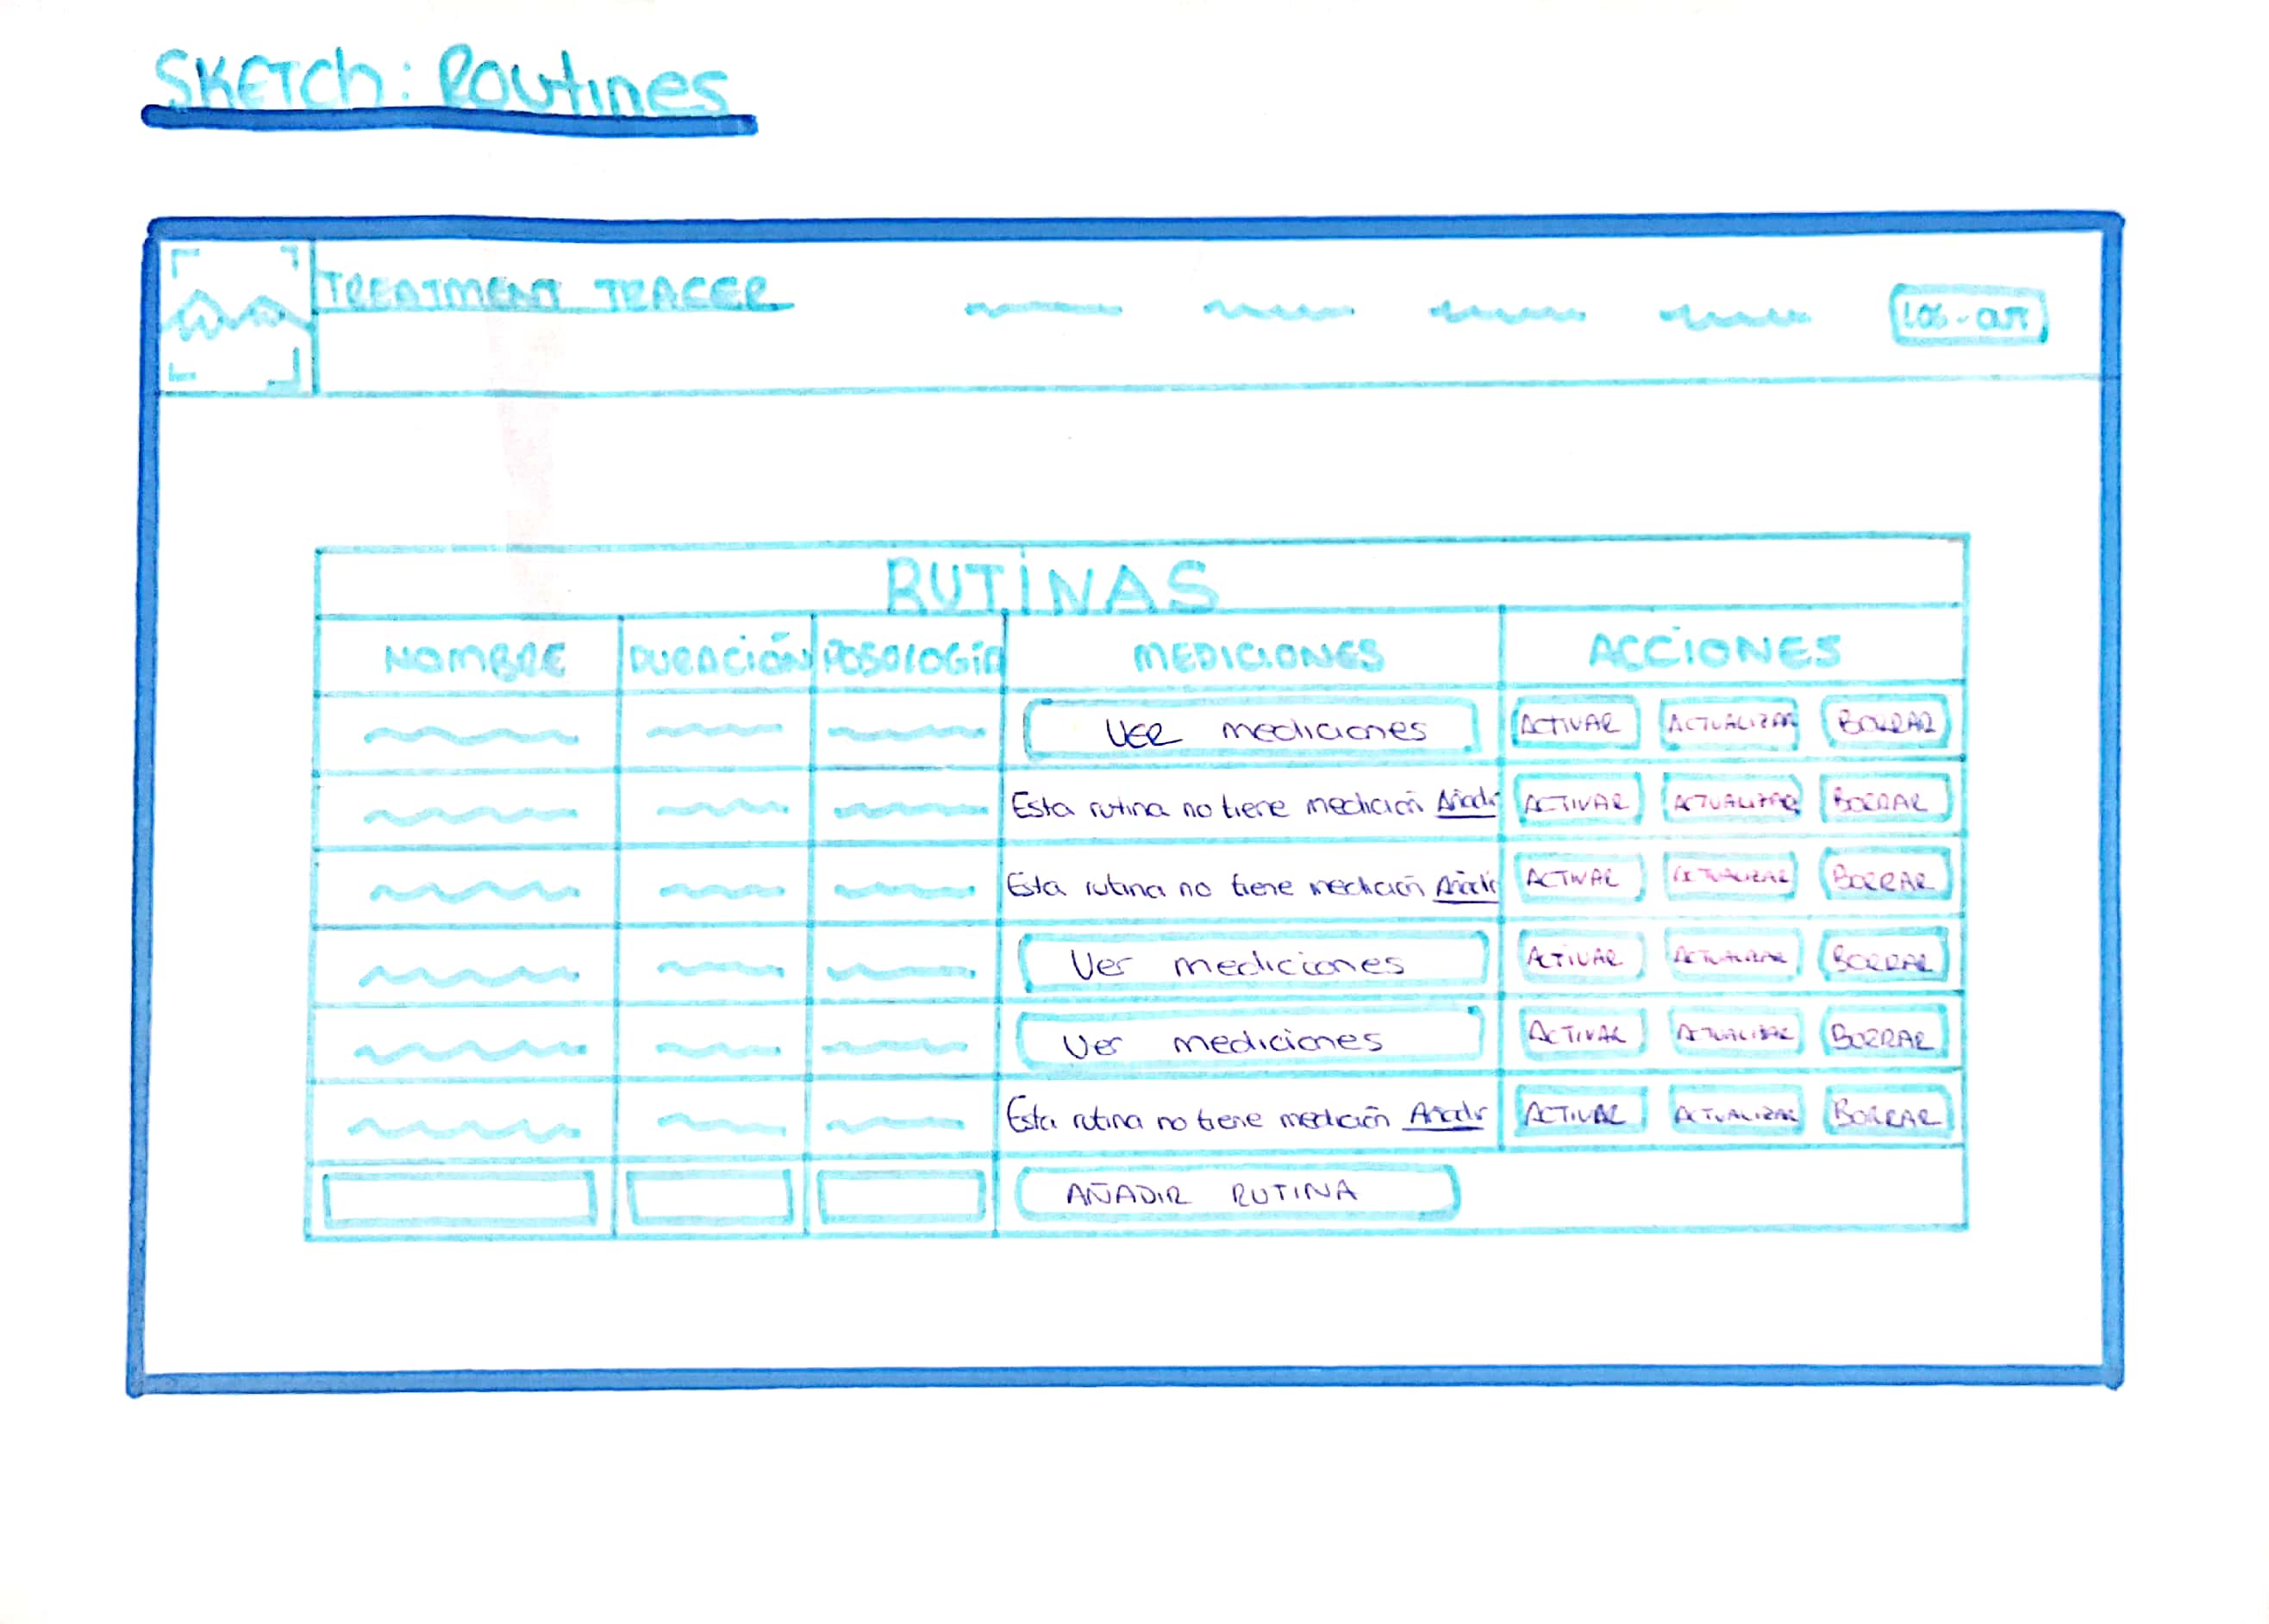 SKETCH: Routines
TREATMENT TRACER
LOG-OUT
RUTINAS
NOMBRE DURACIÓN POSOLOGÍA MEDICIONES ACCIONES
VER mediciones ACTIVAR ACTUALIZAR BORRAR
Esta rutina no tiene medición Añadir ACTIVAR ACTUALIZAR BORRAR
Esta rutina no tiene medición Añadir ACTIVAR ACTUALIZAR BORRAR
Ver mediciones ACTIVAR ACTUALIZAR BORRAR
Ver mediciones ACTIVAR ACTUALIZAR BORRAR
Esta rutina no tiene medición Añadir ACTIVAR ACTUALIZAR BORRAR
AÑADIR RUTINA